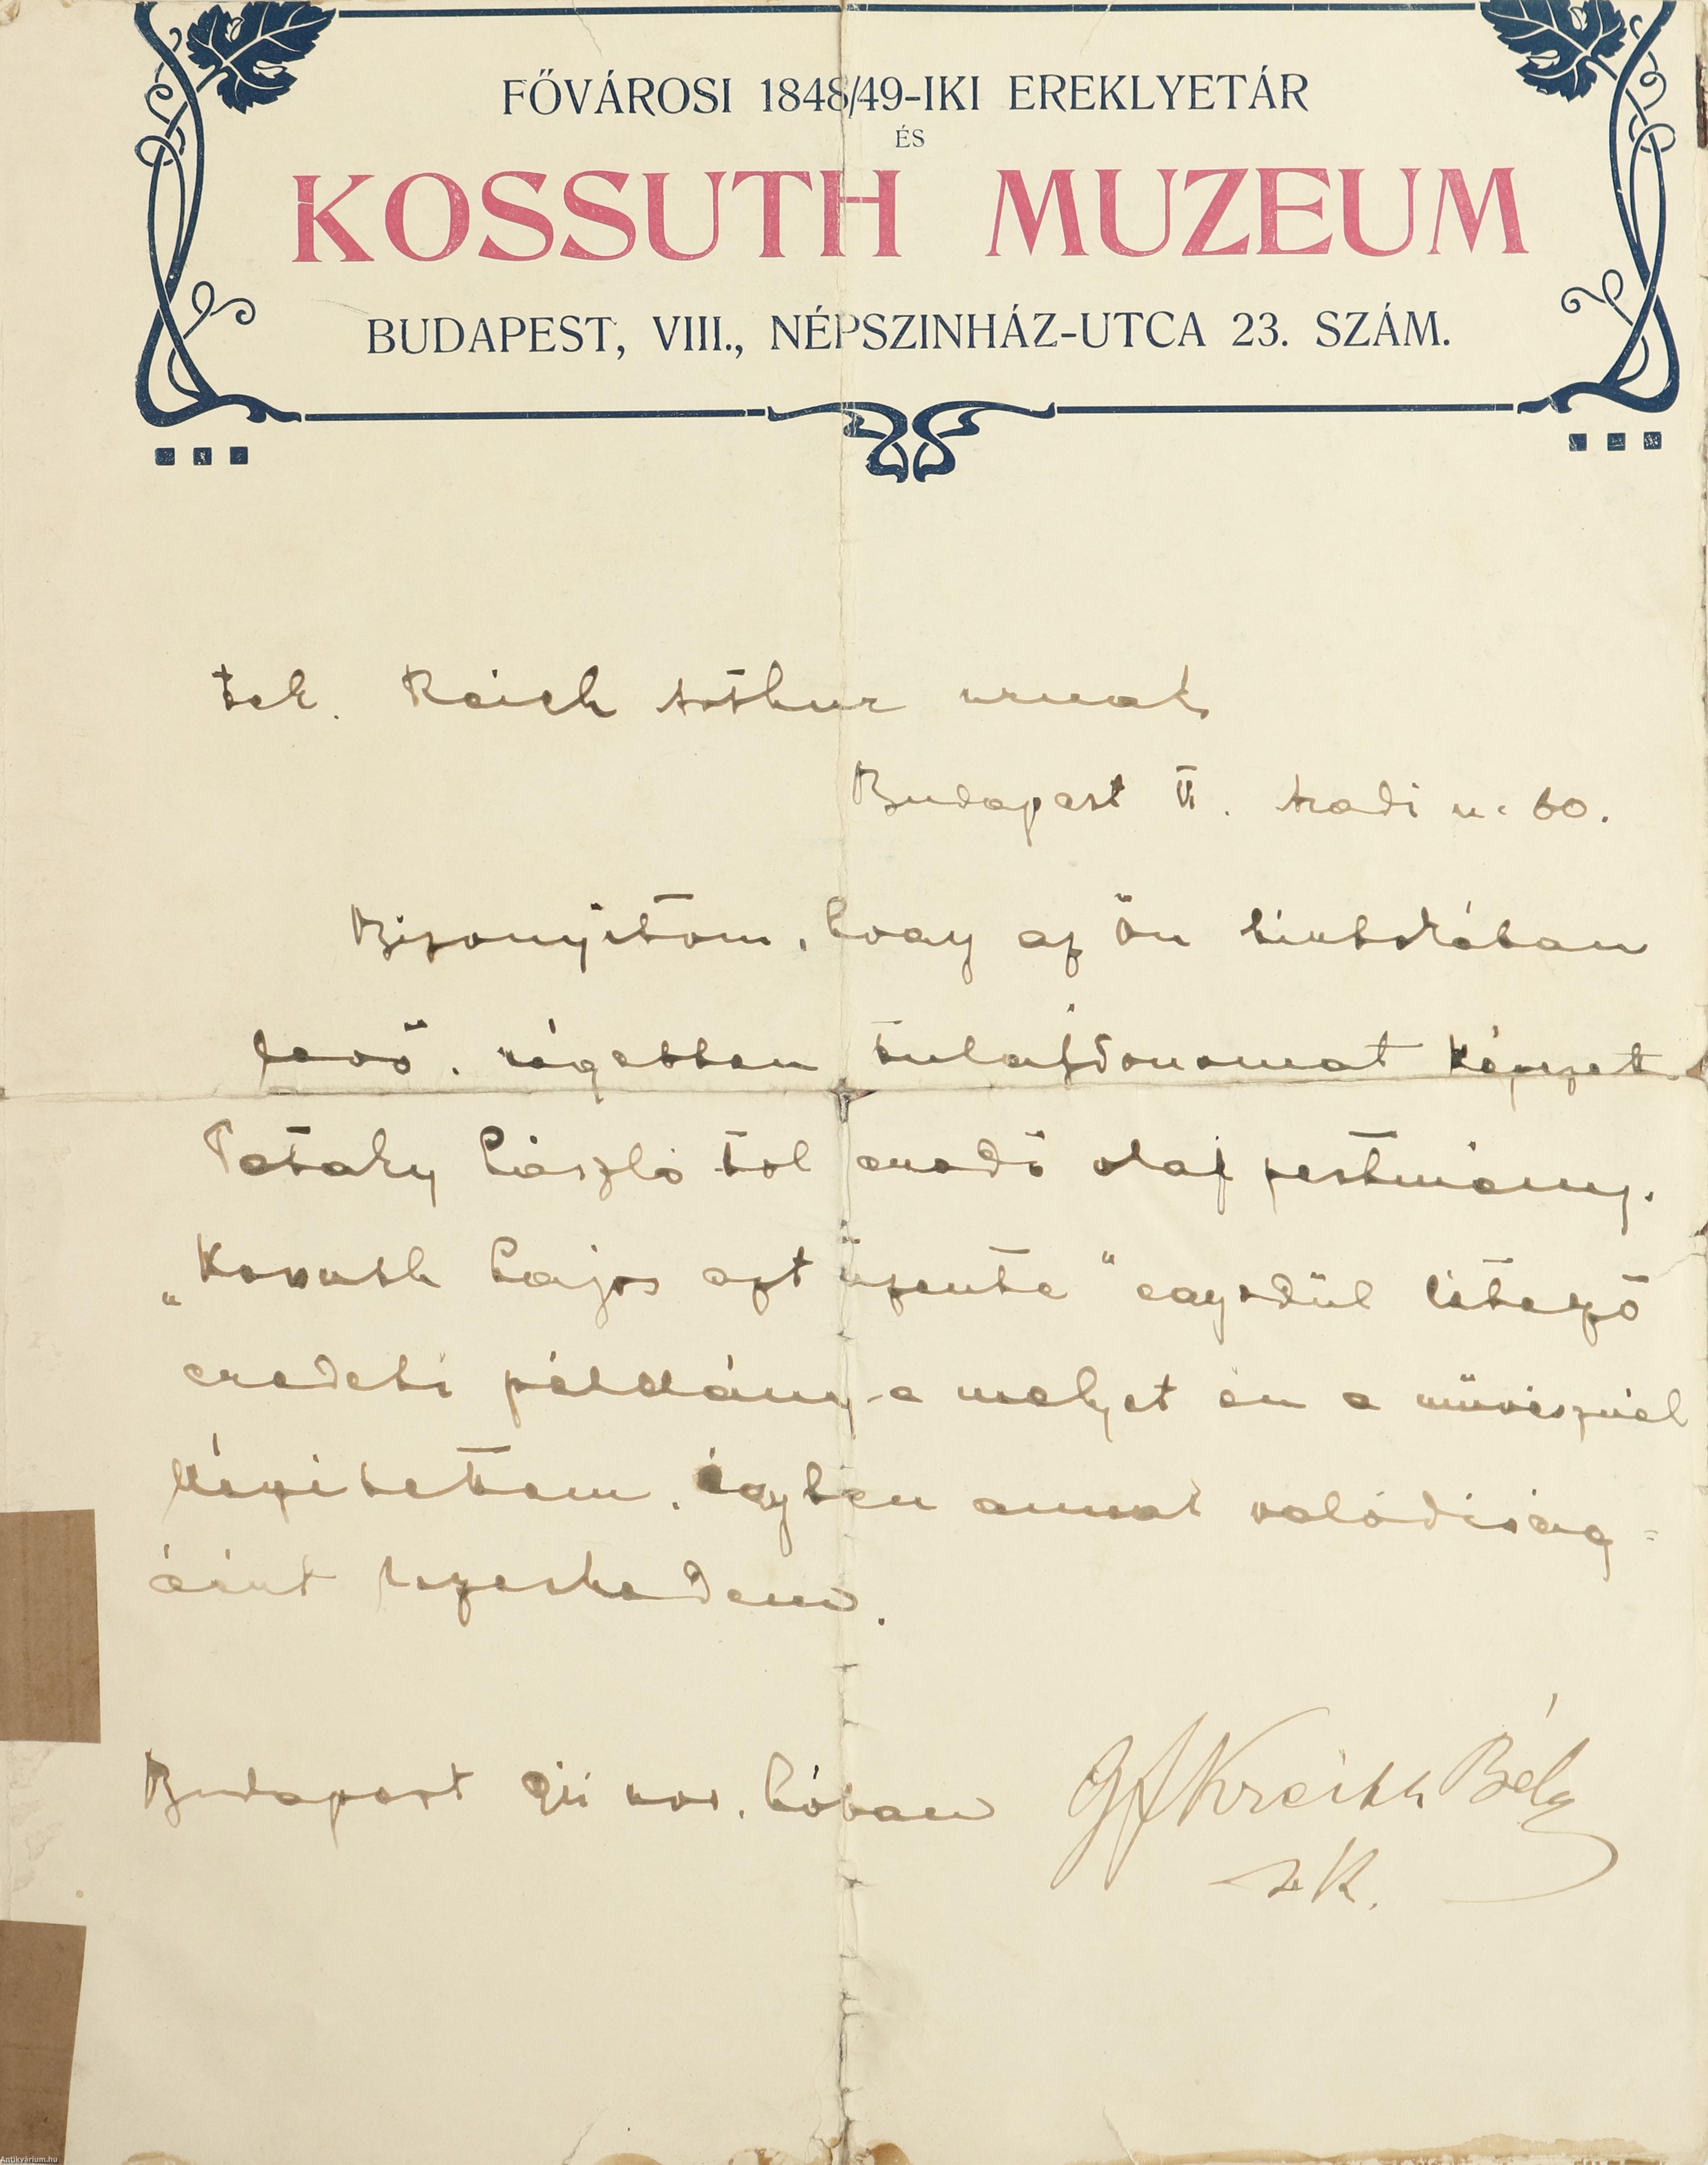 FŐVÁROSI 1848/49-IKI EREKLYETÁR
ÉS
KOSSUTH MUZEUM
BUDAPEST, VIII., NÉPSZINHÁZ-UTCA 23. SZÁM.
Tek. Reich Arthur urnak
Budapest VI. Aradi u. 60.
Bizonyitom, hogy az Ön birtokában
levő, régebben tulajdonomat képezett
Pataky László tól eredő olaj festmény.
„Kossuth Lajos azt üzente" egyedül létező
eredeti példány a melyet én a művésznél
Egyben annak valódiság=
áért szavatolok.
Budapest 911 nov. hóban
Gf Kreith Béla
sK.
Antikvárium.hu